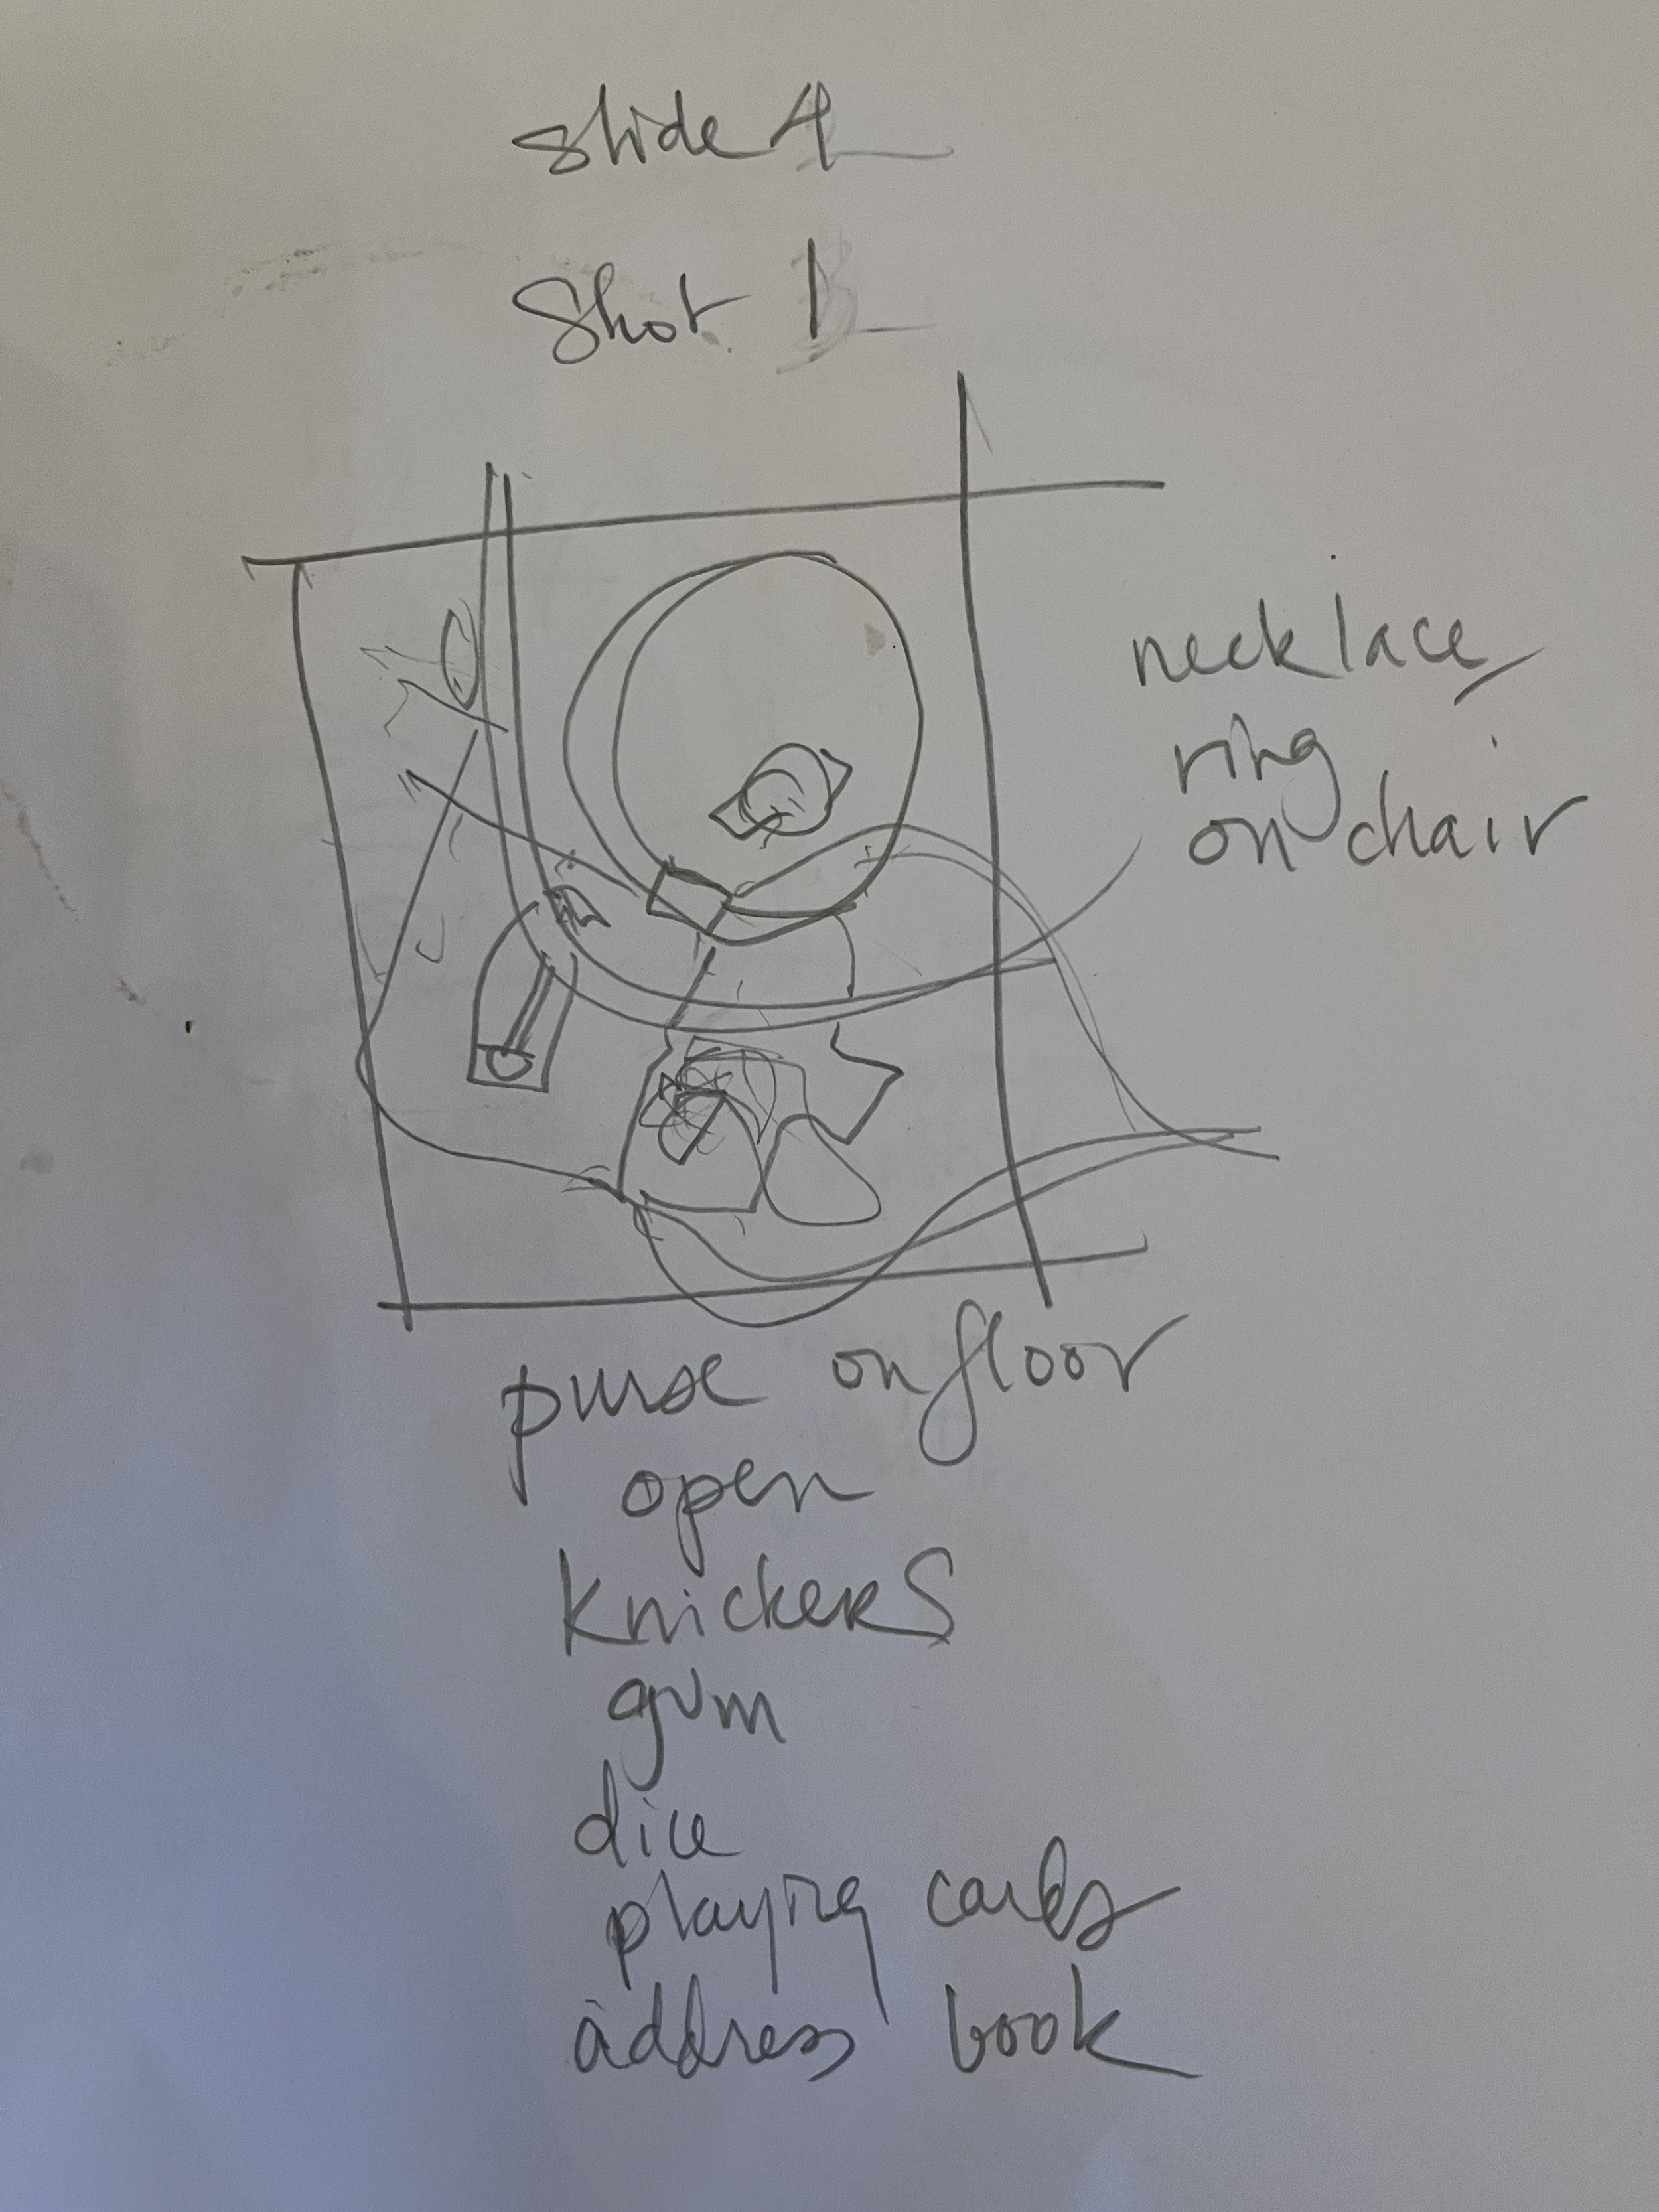 slide 4
shot 1
necklace
ring
on chair
purse on floor
open
knickers
gum
dice
playing cards
address book